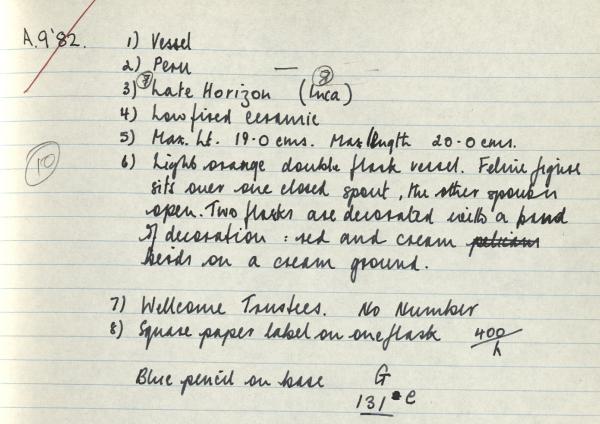 A.9'82.
1) Vessel
2) Peru —
3) ? Late Horizon (Inca) ?
4) Low fired ceramic
5) Max. ht. 19.0 cms. Max length 20.0 cms.
10
6) Light orange double flask vessel. Feline figure
sits over one closed spout, the other spout is
open. Two flasks are decorated with a band
of decoration : red and cream pelicans
birds on a cream ground.
7) Wellcome Trustees. No Number
8) Square paper label on one flask 400/h
Blue pencil on base G
131 e